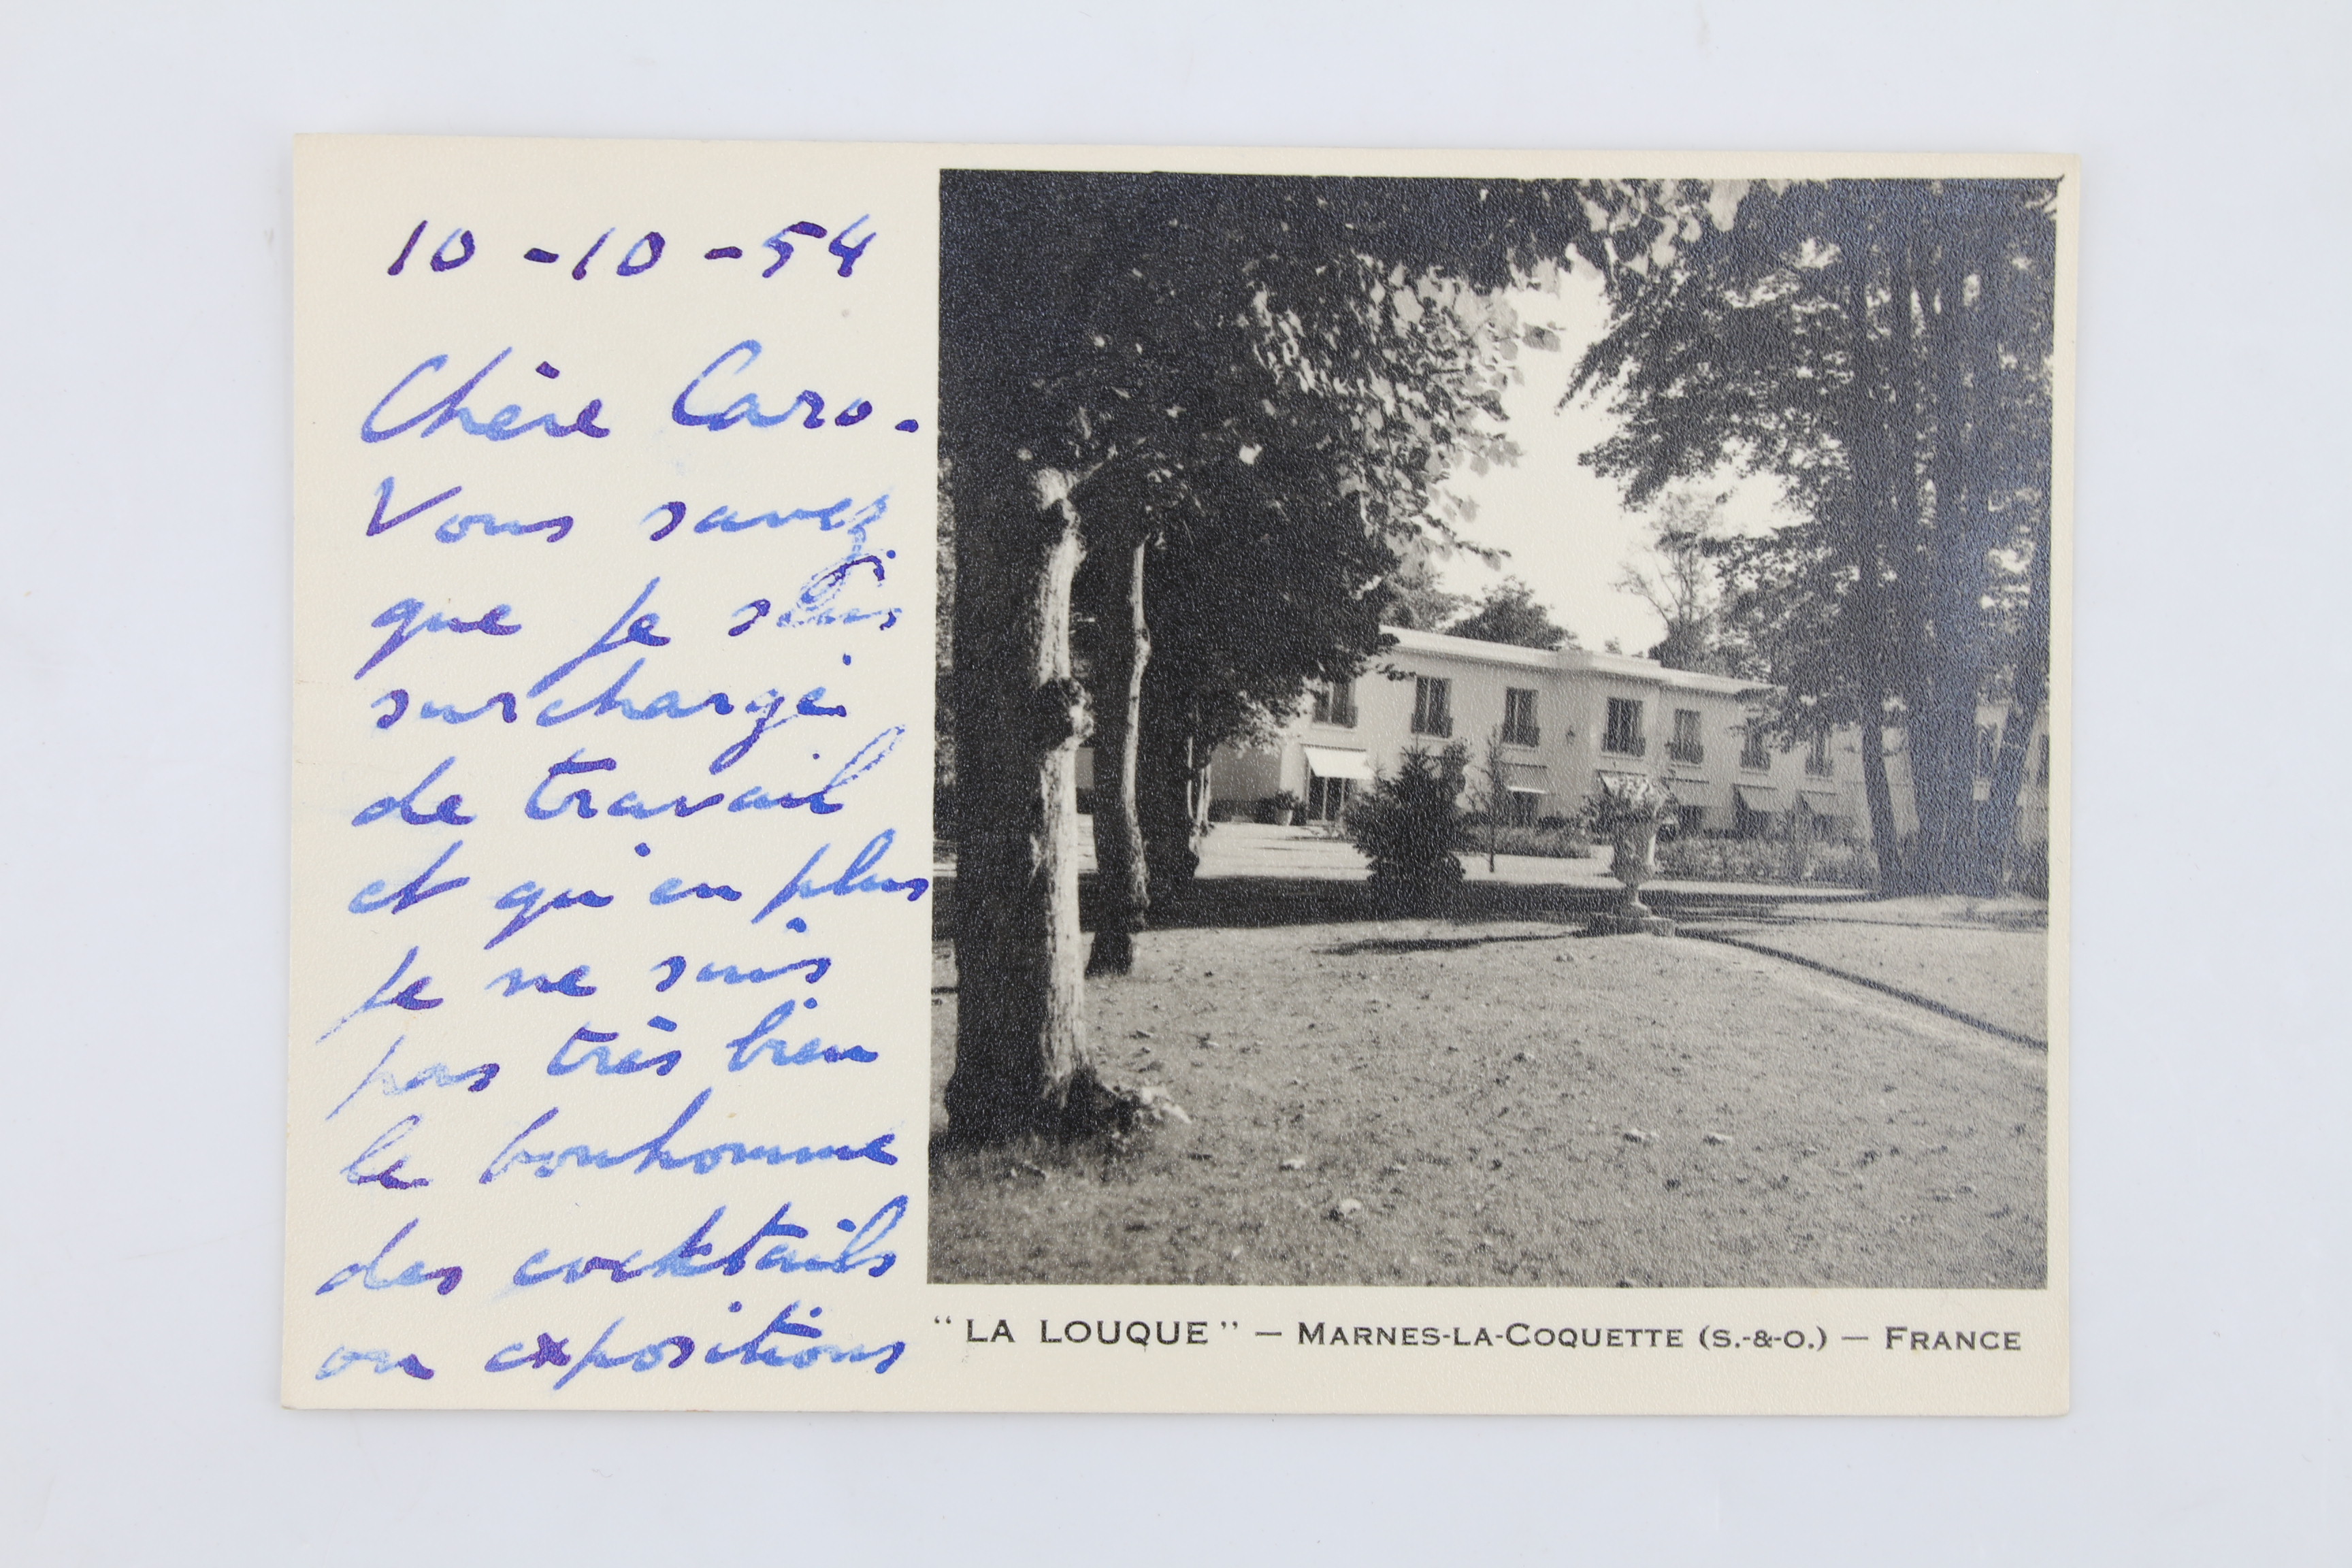 10-10-54
Chère Caro.
Vous savez
que je suis
surchargé
de travail
et qu'en plus
je ne suis
pas très bien
le bonhomme
des cocktails
ou expositions
"LA LOUQUE" — MARNES-LA-COQUETTE (S.-&-O.) — FRANCE